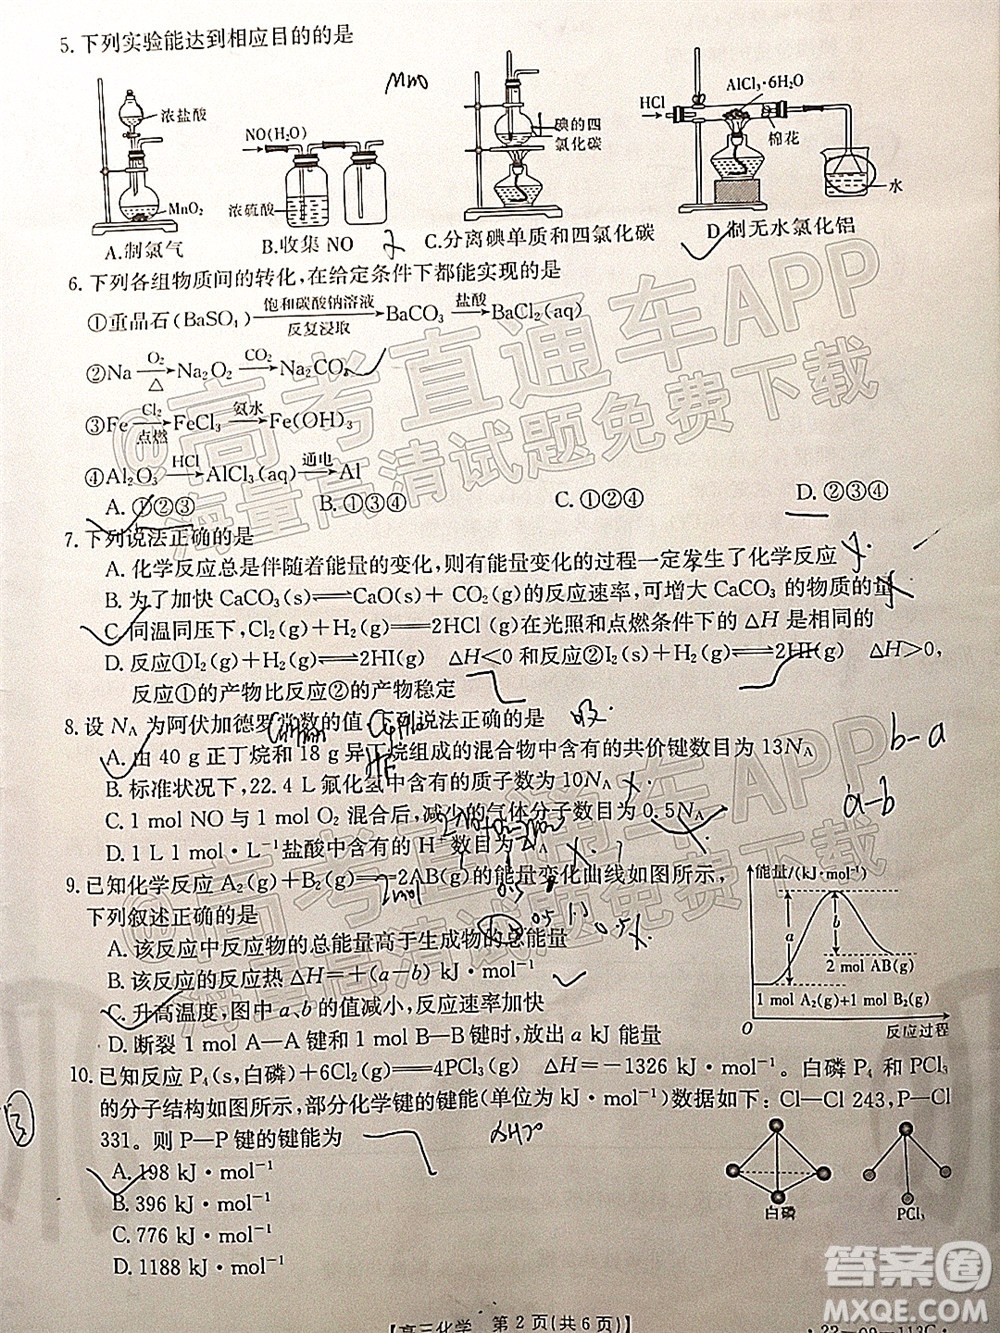 5. 下列实验能达到相应目的的是
MnO
浓盐酸
MnO₂
NO(H₂O)
浓硫酸
碘的四
氯化碳
AlCl₃·6H₂O
HCl
棉花
水
A.制氯气
B.收集 NO
C.分离碘单质和四氯化碳
D.制无水氯化铝
6. 下列各组物质间的转化,在给定条件下都能实现的是
①重晶石(BaSO₄) 饱和碳酸钠溶液 反复浸取 → BaCO₃ 盐酸 → BaCl₂(aq)
②Na O₂ △ → Na₂O₂ CO₂ → Na₂CO₃
③Fe Cl₂ 点燃 → FeCl₃ 氨水 → Fe(OH)₃
④Al₂O₃ HCl → AlCl₃(aq) 通电 → Al
A. ①②③ B. ①③④ C. ①②④ D. ②③④
7. 下列说法正确的是
A. 化学反应总是伴随着能量的变化,则有能量变化的过程一定发生了化学反应
B. 为了加快 CaCO₃(s)⇌CaO(s)+ CO₂(g)的反应速率,可增大 CaCO₃ 的物质的量
C. 同温同压下,Cl₂(g)+H₂(g)══2HCl(g)在光照和点燃条件下的 ΔH 是相同的
D. 反应①I₂(g)+H₂(g)⇌2HI(g) ΔH<0 和反应②I₂(s)+H₂(g)⇌2HI(g) ΔH>0,
反应①的产物比反应②的产物稳定
8. 设 Nᴀ 为阿伏加德罗常数的值,下列说法正确的是
b-a
A. 由 40 g 正丁烷和 18 g 异丁烷组成的混合物中含有的共价键数为 13Nᴀ
HF
B. 标准状况下,22.4 L 氟化氢中含有的质子数为 10Nᴀ
a-b
C. 1 mol NO 与 1 mol O₂ 混合后,减少的气体分子数为 0.5Nᴀ
D. 1 L 1 mol·L⁻¹盐酸中含有的 H⁺数目为 Nᴀ
9. 已知化学反应 A₂(g)+B₂(g)══2AB(g)的能量变化曲线如图所示,
下列叙述正确的是
A. 该反应中反应物的总能量高于生成物的总能量
B. 该反应的反应热 ΔH=+(a-b) kJ·mol⁻¹
C. 升高温度,图中 a、b 的值减小,反应速率加快
D. 断裂 1 mol A—A 键和 1 mol B—B 键时,放出 a kJ 能量
能量/(kJ·mol⁻¹)
a
b
2 mol AB(g)
1 mol A₂(g)+1 mol B₂(g)
O
反应过程
10. 已知反应 P₄(s,白磷)+6Cl₂(g)══4PCl₃(g) ΔH=-1326 kJ·mol⁻¹。白磷 P₄ 和 PCl₃
的分子结构如图所示,部分化学键的键能(单位为 kJ·mol⁻¹)数据如下:Cl—Cl 243,P—Cl
331。则 P—P 键的键能为
③
A. 198 kJ·mol⁻¹
B. 396 kJ·mol⁻¹
C. 776 kJ·mol⁻¹
D. 1188 kJ·mol⁻¹
白磷
PCl₃
【高三化学 第 2 页(共 6 页)】
·23-09-113C·
@高考直通车APP
海量高清试题免费下载
@高考直通车APP
海量高清试题免费下载
答案圈
MXQE.COM